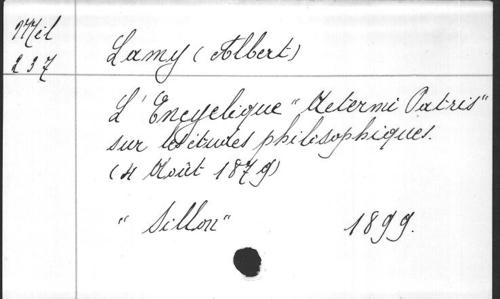 Mil
237
Lamy (Albert)
L'Encyclique "Aeterni Patris"
sur les études philosophiques.
(4 Août 1879)
"Sillon" 1899.